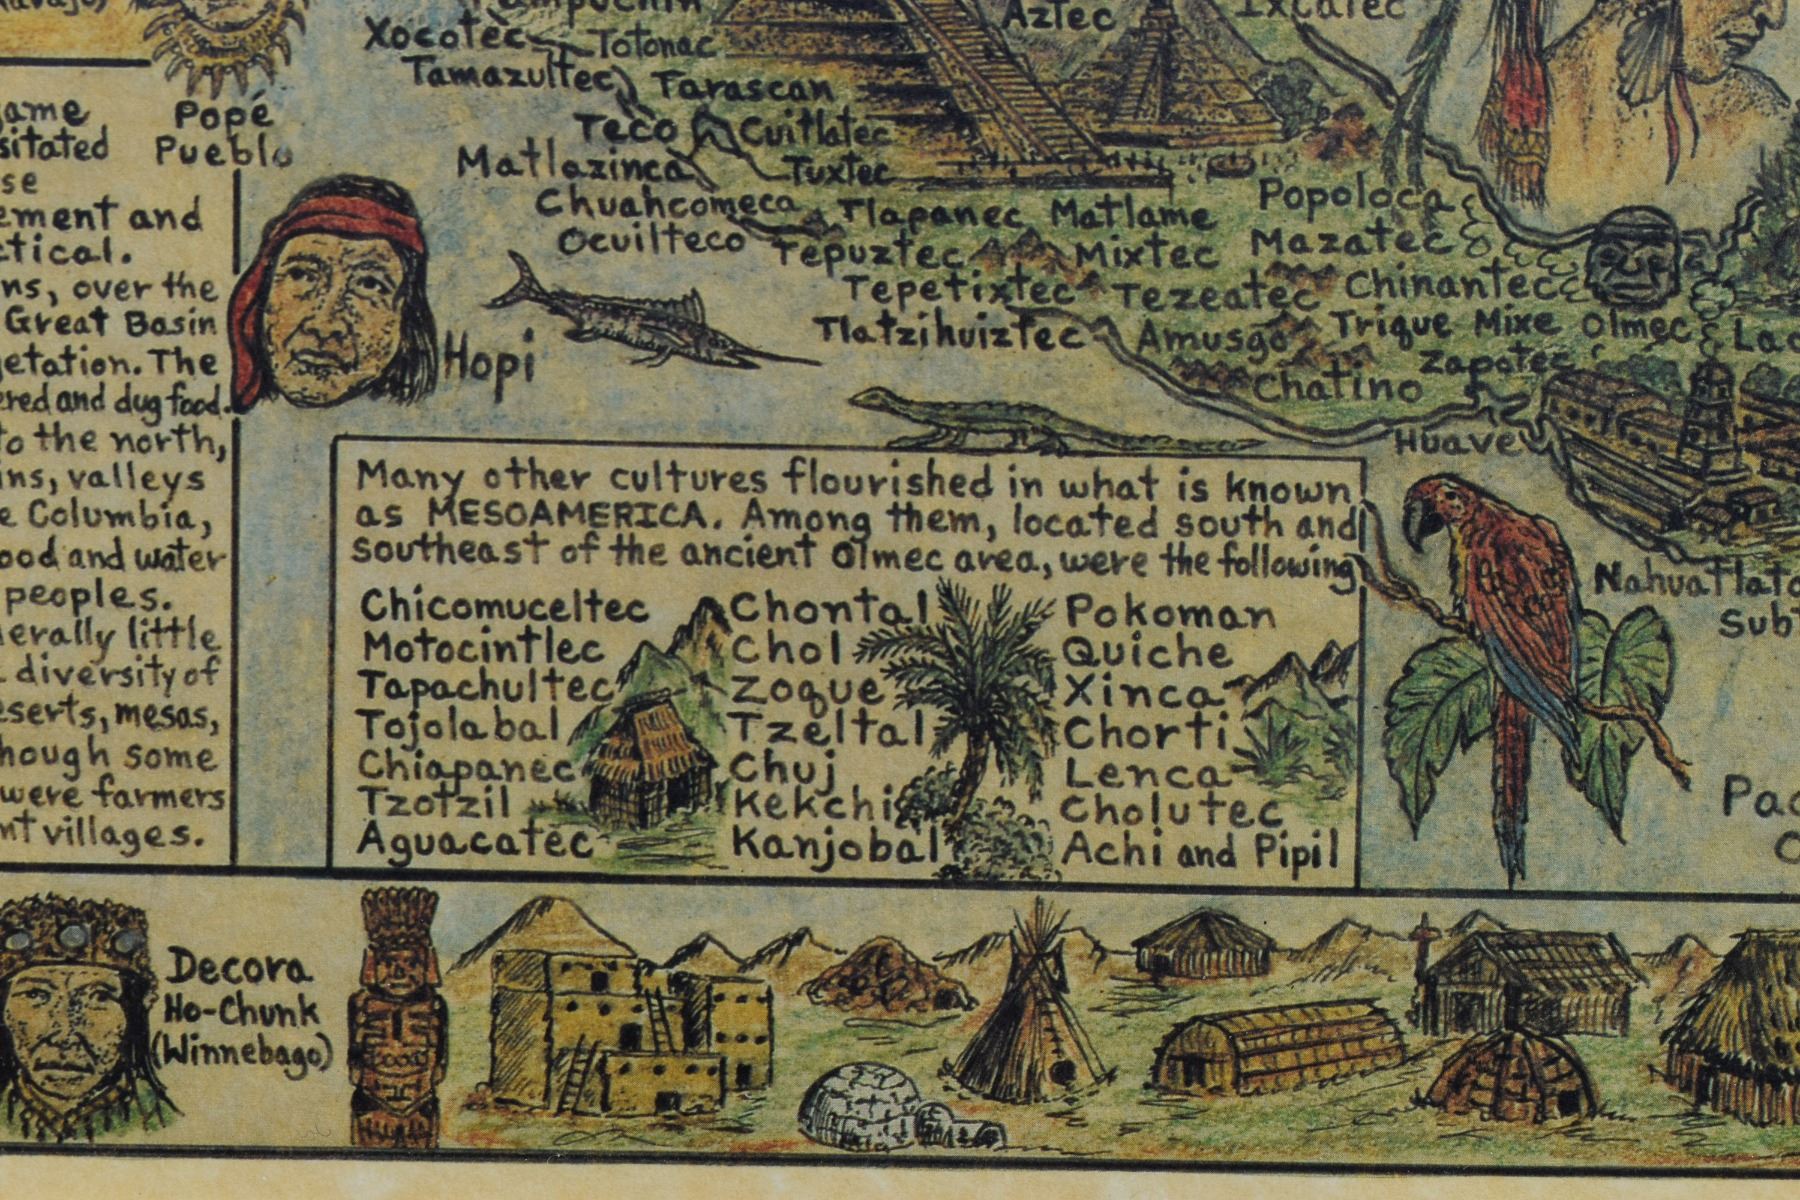 Xocotec
Totonac
Aztec
Tamazultec
Tarascan
Pope
Pueblo
Teco
Cuitlatec
Matlazinca
Tuxtec
Chuahcomeca
Tlapanec
Matlame
Popoloca
Ocuilteco
Tepuztec
Mixtec
Mazatec
Tepetixtec
Tezcatec
Chinantec
Tlatzihuiztec
Amusgo
Trique
Mixe
Olmec
Zapotec
Chatino
Huave
Hopi
and
tical.
over the
Great Basin
The
and dug food.
to the north,
valleys
Columbia,
and water
peoples.
little
diversity of
mesas,
some
were farmers
villages.
Many other cultures flourished in what is known
as MESOAMERICA. Among them, located south and
southeast of the ancient Olmec area, were the following
Chicomuceltec
Motocintlec
Tapachultec
Tojolabal
Chiapanec
Tzotzil
Aguacatec
Chontal
Chol
Zoque
Tzeltal
Chuj
Kekchi
Kanjobal
Pokoman
Quiche
Xinca
Chorti
Lenca
Cholutec
Achi and Pipil
Decora
Ho-Chunk
(Winnebago)